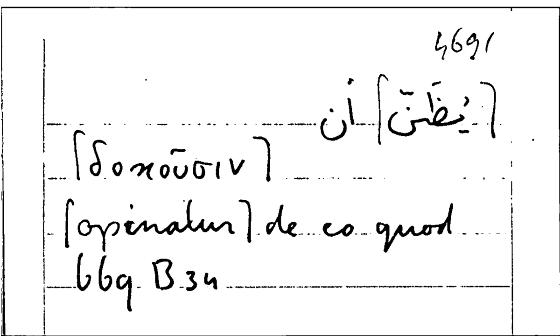 4691
[يُظَنّ] أن
[δοκοῦσιν]
[opinatur] de eo quod
669 B 34